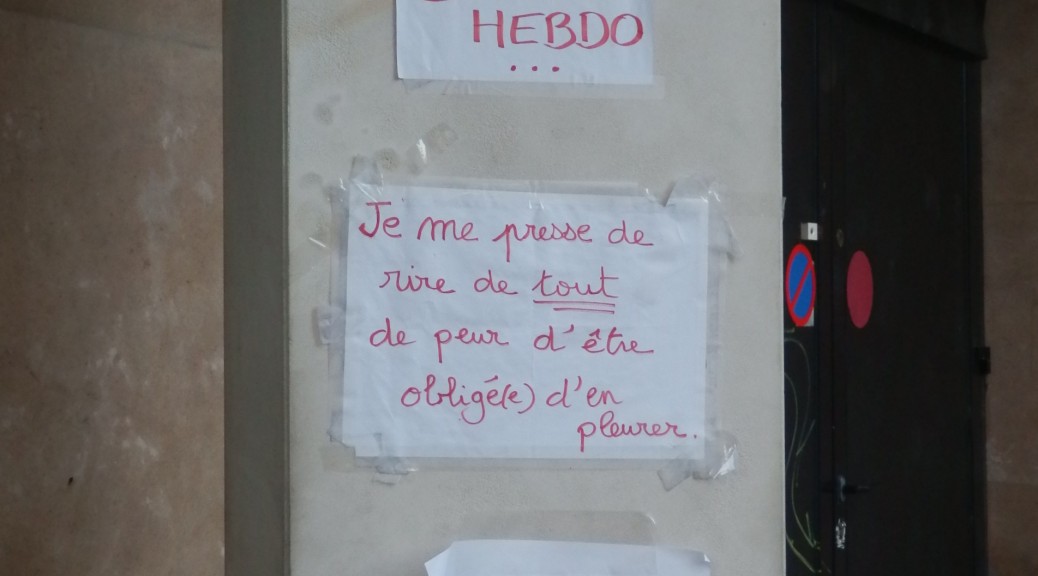 HEBDO
...
Je me presse de
rire de tout
de peur d'être
obligé(e) d'en
pleurer.